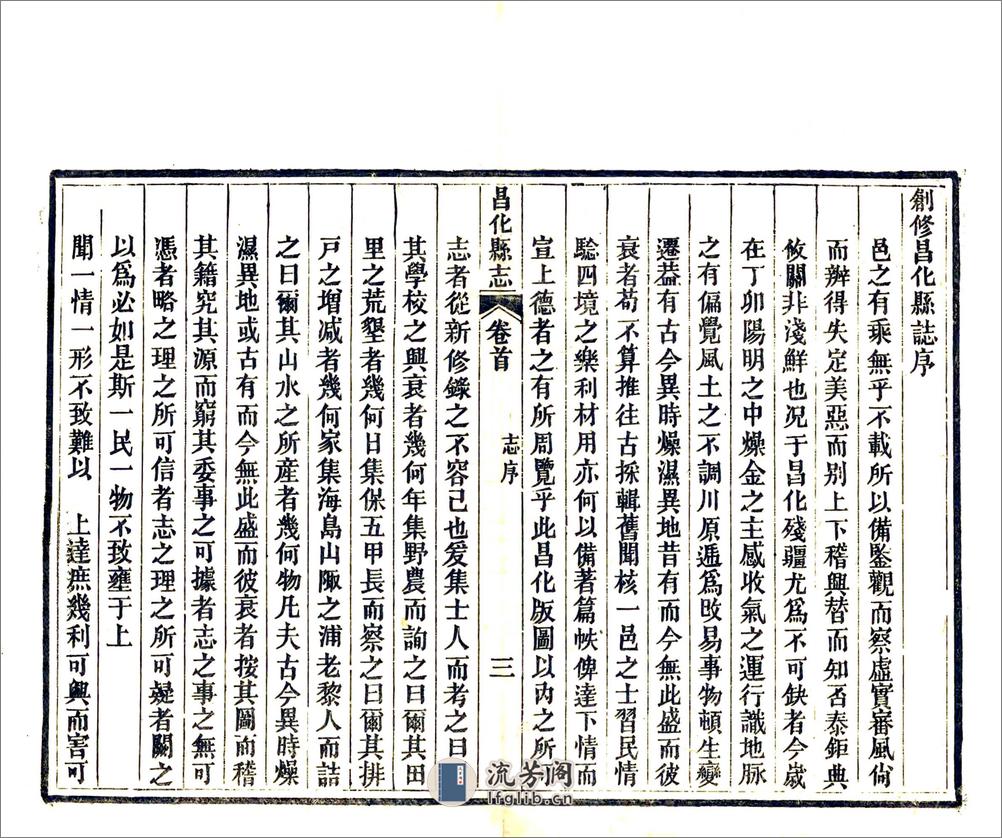 創修昌化縣誌序
邑之有乘無乎不載所以備鑒觀而察虛實審風尚
而辨得失定美惡而别上下稽興替而知否泰鉅典
攸關非淺鮮也况于昌化殘疆尤爲不可缺者今歲
在丁卯陽明之中燥金之主感收氣之運行識地脉
之有偏覺風土之不調川原遞爲改易事物頓生變
遷葢有古今異時燥濕異地昔有而今無此盛而彼
衰者苟不算推往古採輯舊聞核一邑之士習民情
騐四境之樂利材用亦何以備著篇帙俾達下情而
宣上德者之有所周覽乎此昌化版圖以內之所
昌化縣志
卷首
志序
三
志者從新修錄之不容已也爰集士人而考之曰
其學校之興衰者幾何年集野農而詢之曰爾其田
里之荒墾者幾何日集保五甲長而察之曰爾其排
戸之增减者幾何家集海島山陬之浦老黎人而詰
之曰爾其山水之所産者幾何物凡夫古今異時燥
濕異地或古有而今無此盛而彼衰者按其圖而稽
其籍究其源而窮其委事之可據者志之事之無可
憑者略之理之所可信者志之理之所可疑者闕之
以爲必如是斯一民一物不致壅于上
聞一情一形不致難以 上達庶幾利可興而害可
流芳阁
lfglib.cn